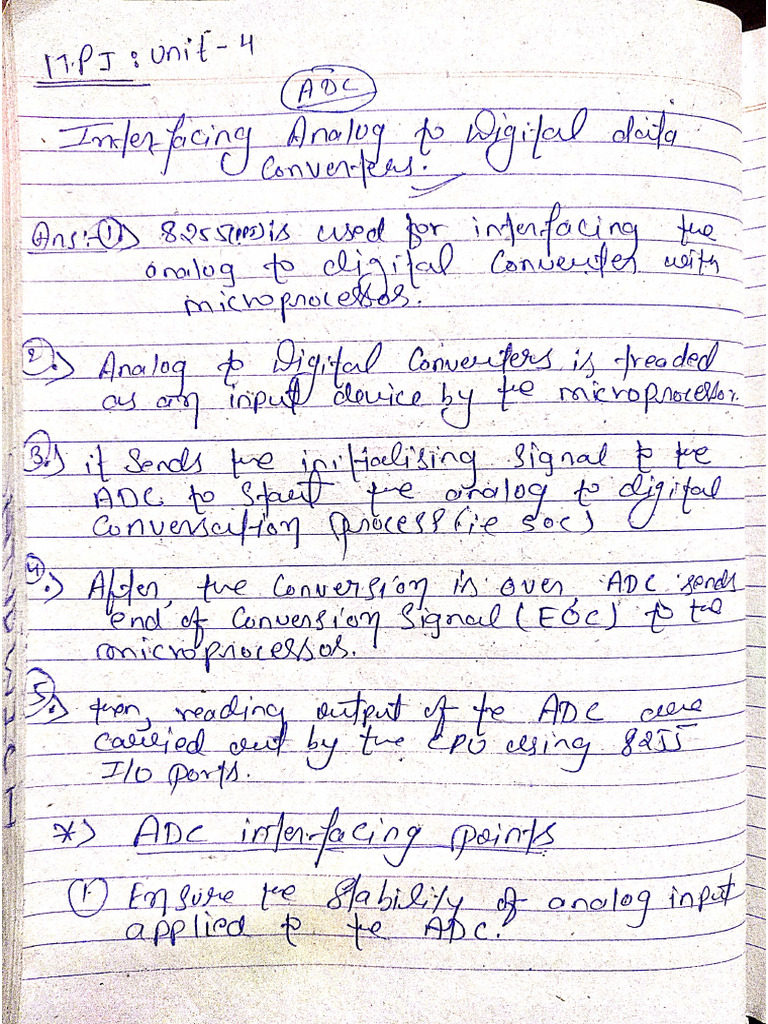 M.P.I : Unit - 4
ADC
Interfacing Analog to Digital data
Converters.
Ans:- ①) 8255(PPI) is used for interfacing the
analog to digital Converter with
microprocessor.
②.) Analog to Digital Converters is treaded
as an input device by the microprocessor.
③.) it sends the initialising signal to the
ADC to start the analog to digital
Conversation process (ie soc)
④.) After, the Conversion is over, ADC sends
end of Conversion signal (EOC) to the
microprocessor.
⑤.) then, reading output of the ADC are
carried out by the CPU using 8255
I/O ports.
*) ADC interfacing points
① Ensure the stability of analog input
applied to the ADC.